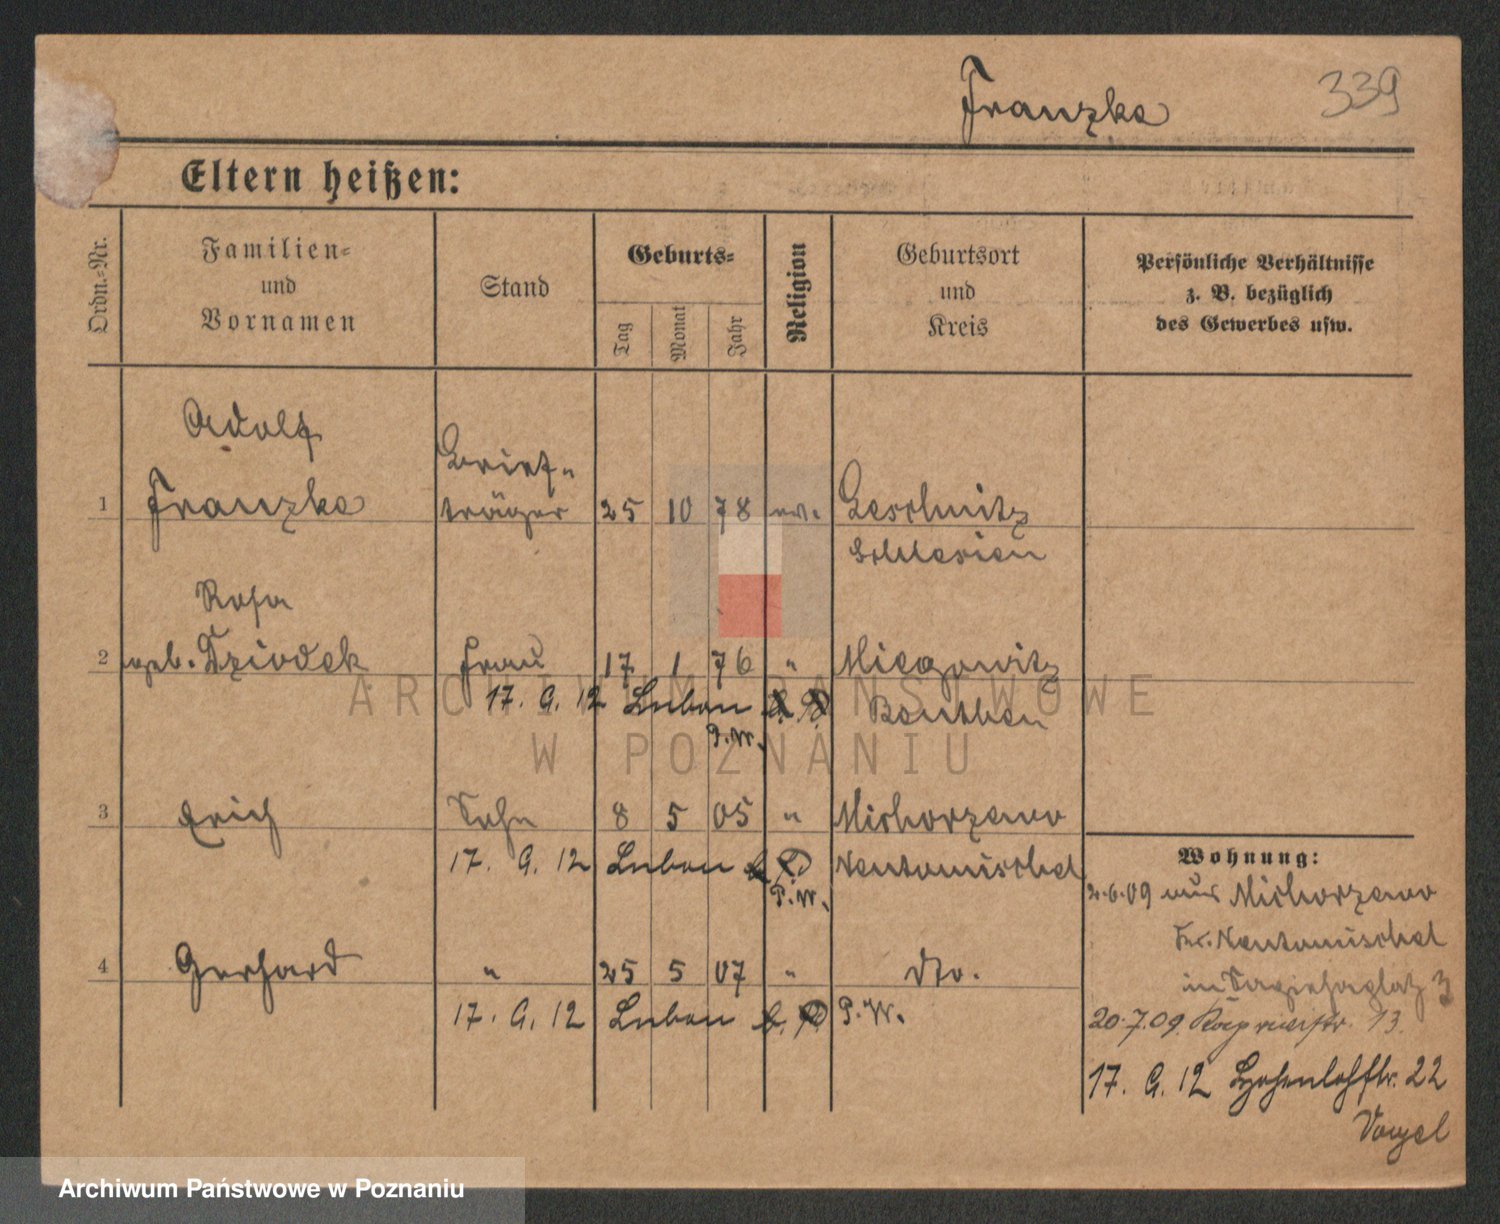 Franzke 339
Eltern heißen:
Ordn.=Nr.
Familien=
und
Vornamen
Stand
Geburts=
Tag
Monat
Jahr
Religion
Geburtsort
und
Kreis
Persönliche Verhältnisse
z. B. bezüglich
des Gewerbes usw.
Adolf
Brief-
1 Franzke träger 25 10 78 ev. Leschnitz
Schlesien
Rosa
2 geb. Dziodek Frau 17 1 76 " Miechowitz
17. 9. 12 Luban Beuthen
P. W.
3 Erich Sohn 8 5 05 " Michorzewo
17. 9. 12 Luban Neutomischel
P. W.
4 Gerhard " 25 5 07 " dto.
17. 9. 12 Luban P. W.
Wohnung:
2.6.09 aus Michorzewo
Kr. Neutomischel
in 3
20.7.09. 13.
17. 9. 12 Hohenlohstr. 22
Vogel
ARCHIWUM PAŃSTWOWE
W POZNANIU
Archiwum Państwowe w Poznaniu